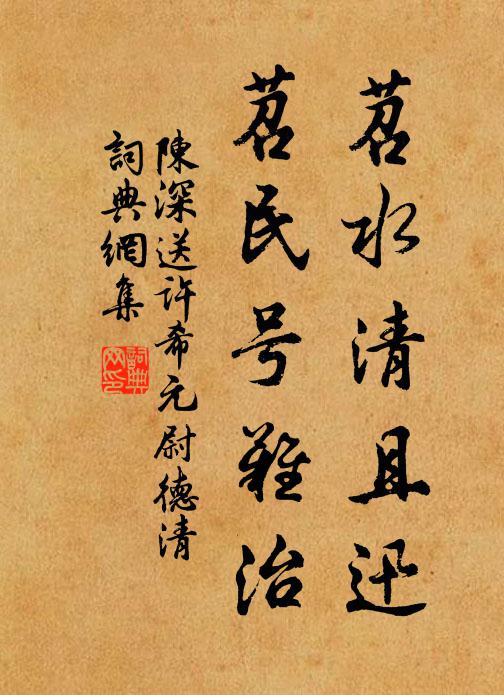 苕水清且迅
苕民号難治
陳深送許希元尉德清
詞典網集
詞典网印